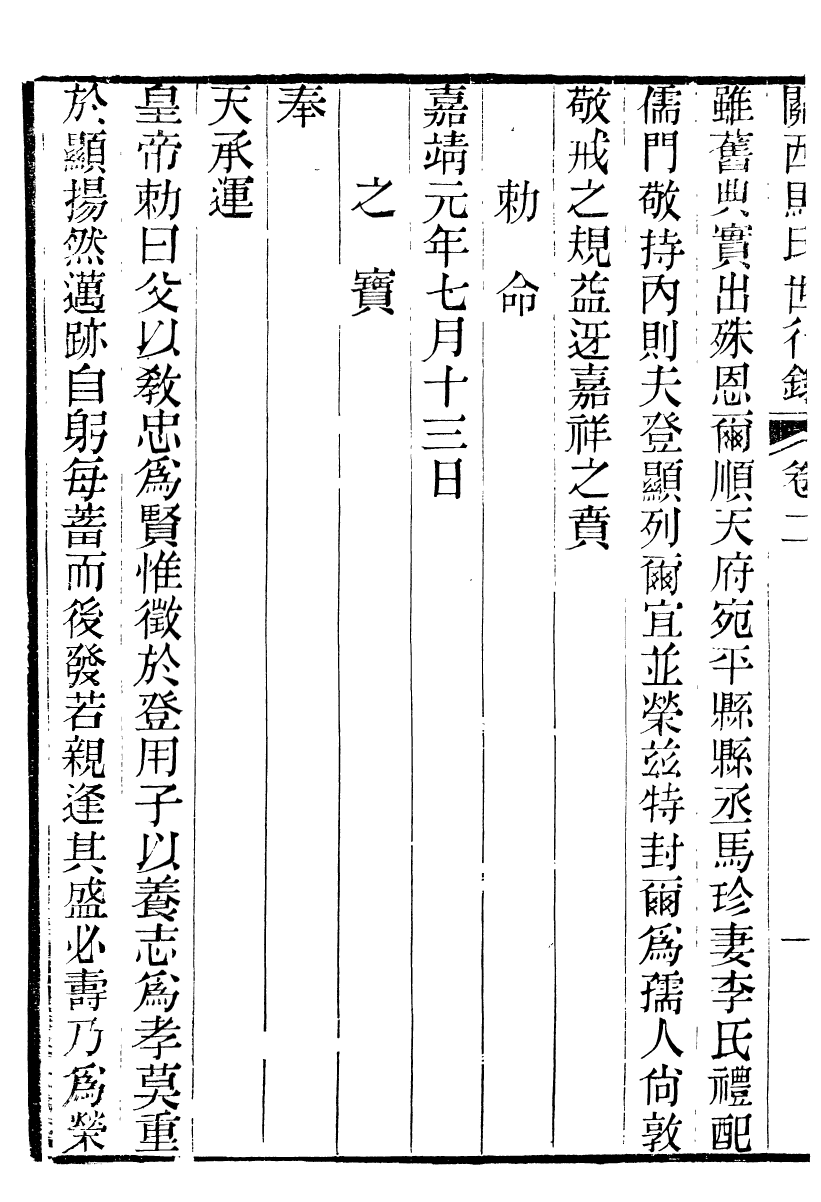 關西馬氏世行錄 卷二 一
雖舊典實出殊恩爾順天府宛平縣縣丞馬珍妻李氏禮配
儒門敬持內則夫登顯列爾宜並榮兹特封爾為孺人尙敦
敬戒之規益迓嘉祥之賁
勅命
嘉靖元年七月十三日
之寶
奉
天承運
皇帝勅曰父以敎忠為賢惟徵於登用子以養志為孝莫重
於顯揚然邁跡自躬每蓄而後發若親逢其盛必壽乃為榮